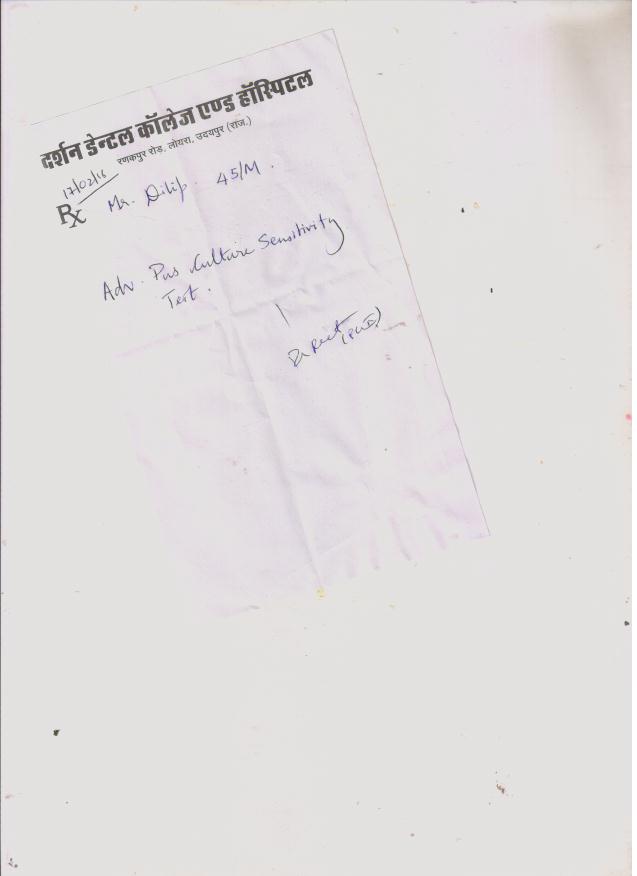 दर्शन डेन्टल कॉलेज एण्ड हॉस्पिटल
रणकपुर रोड, लोयरा, उदयपुर (राज.)
17/02/16
Rx Mr. Dilip 45/M.
Adv. Pus Culture Sensitivity
Test.
Dr